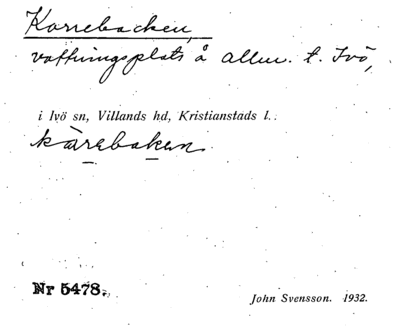 Karrebacken,
vattningsplats å allm. t. Ivö,
i Ivö sn, Villands hd, Kristianstads l.
kàrebakan.
Nr 5478.
John Svensson. 1932.